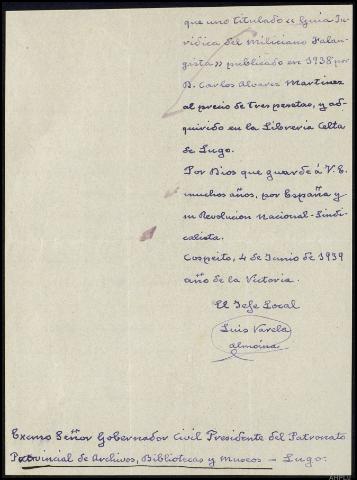 que uno titulado «Guia Ju-
ridica del Miliciano Falan-
gista» publicado en 1938 por
D. Carlos Alvarez Martinez
al precio de tres pesetas, y ad-
quirido en la Libreria Celta
de Lugo.
Por Dios que guarde á V.E.
muchos años, por España y
su Revolucion Nacional-Sindi-
calista.
Cospeito, 4 de Junio de 1939
año de la Victoria.
El Jefe Local
Luis Varela
Almoina
Excmo Señor Gobernador Civil Presidente del Patronato
Provincial de Archivos, Bibliotecas y Museos – Lugo.
AHPLU